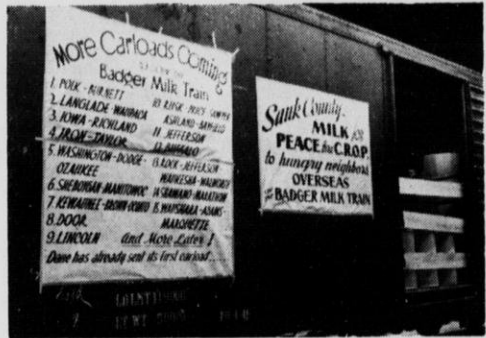 More Carloads Coming
Badger Milk Train
1. POLK - BURNETT
2. LANGLADE - WAUPACA
3. IOWA - RICHLAND
4. IRON - TAYLOR
5. WASHINGTON - DODGE -
OZAUKEE
6. SHEBOYGAN - MANITOWOC
7. KEWAUNEE - BROWN - OCONTO
8. DOOR
9. LINCOLN
10. RUSK - PRICE - SAWYER
ASHLAND - BAYFIELD
11. JEFFERSON
12. BUFFALO
13. ROCK - JEFFERSON
WAUKESHA - WALWORTH
14. SHAWANO - MARATHON
15. WAUSHARA - ADAMS -
MARQUETTE
And More Later!
Dane has already sent its first carload...
Sauk County
MILK for
PEACE thru C.R.O.P.
to hungry neighbors
OVERSEAS
BADGER MILK TRAIN